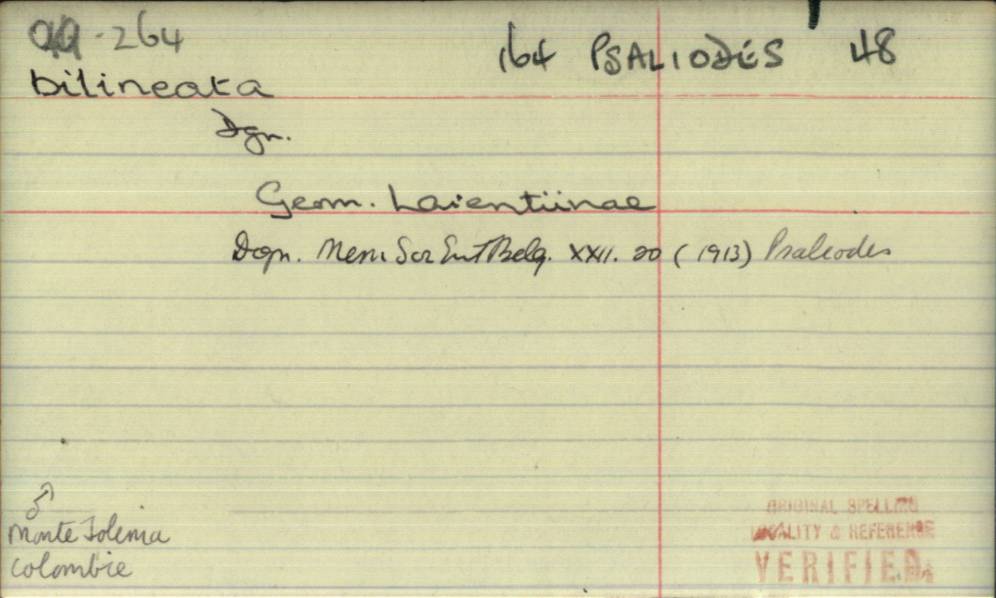 264
164 PSALIODES 48
bilineata
Dgn.
Geom. Larentiinae
Dogn. Mem Soc Ent Belg. XXII. 20 (1913) Psaliodes
♂
Monte Tolima
Colombie
ORIGINAL SPELLING
LOCALITY & REFERENCE
VERIFIED